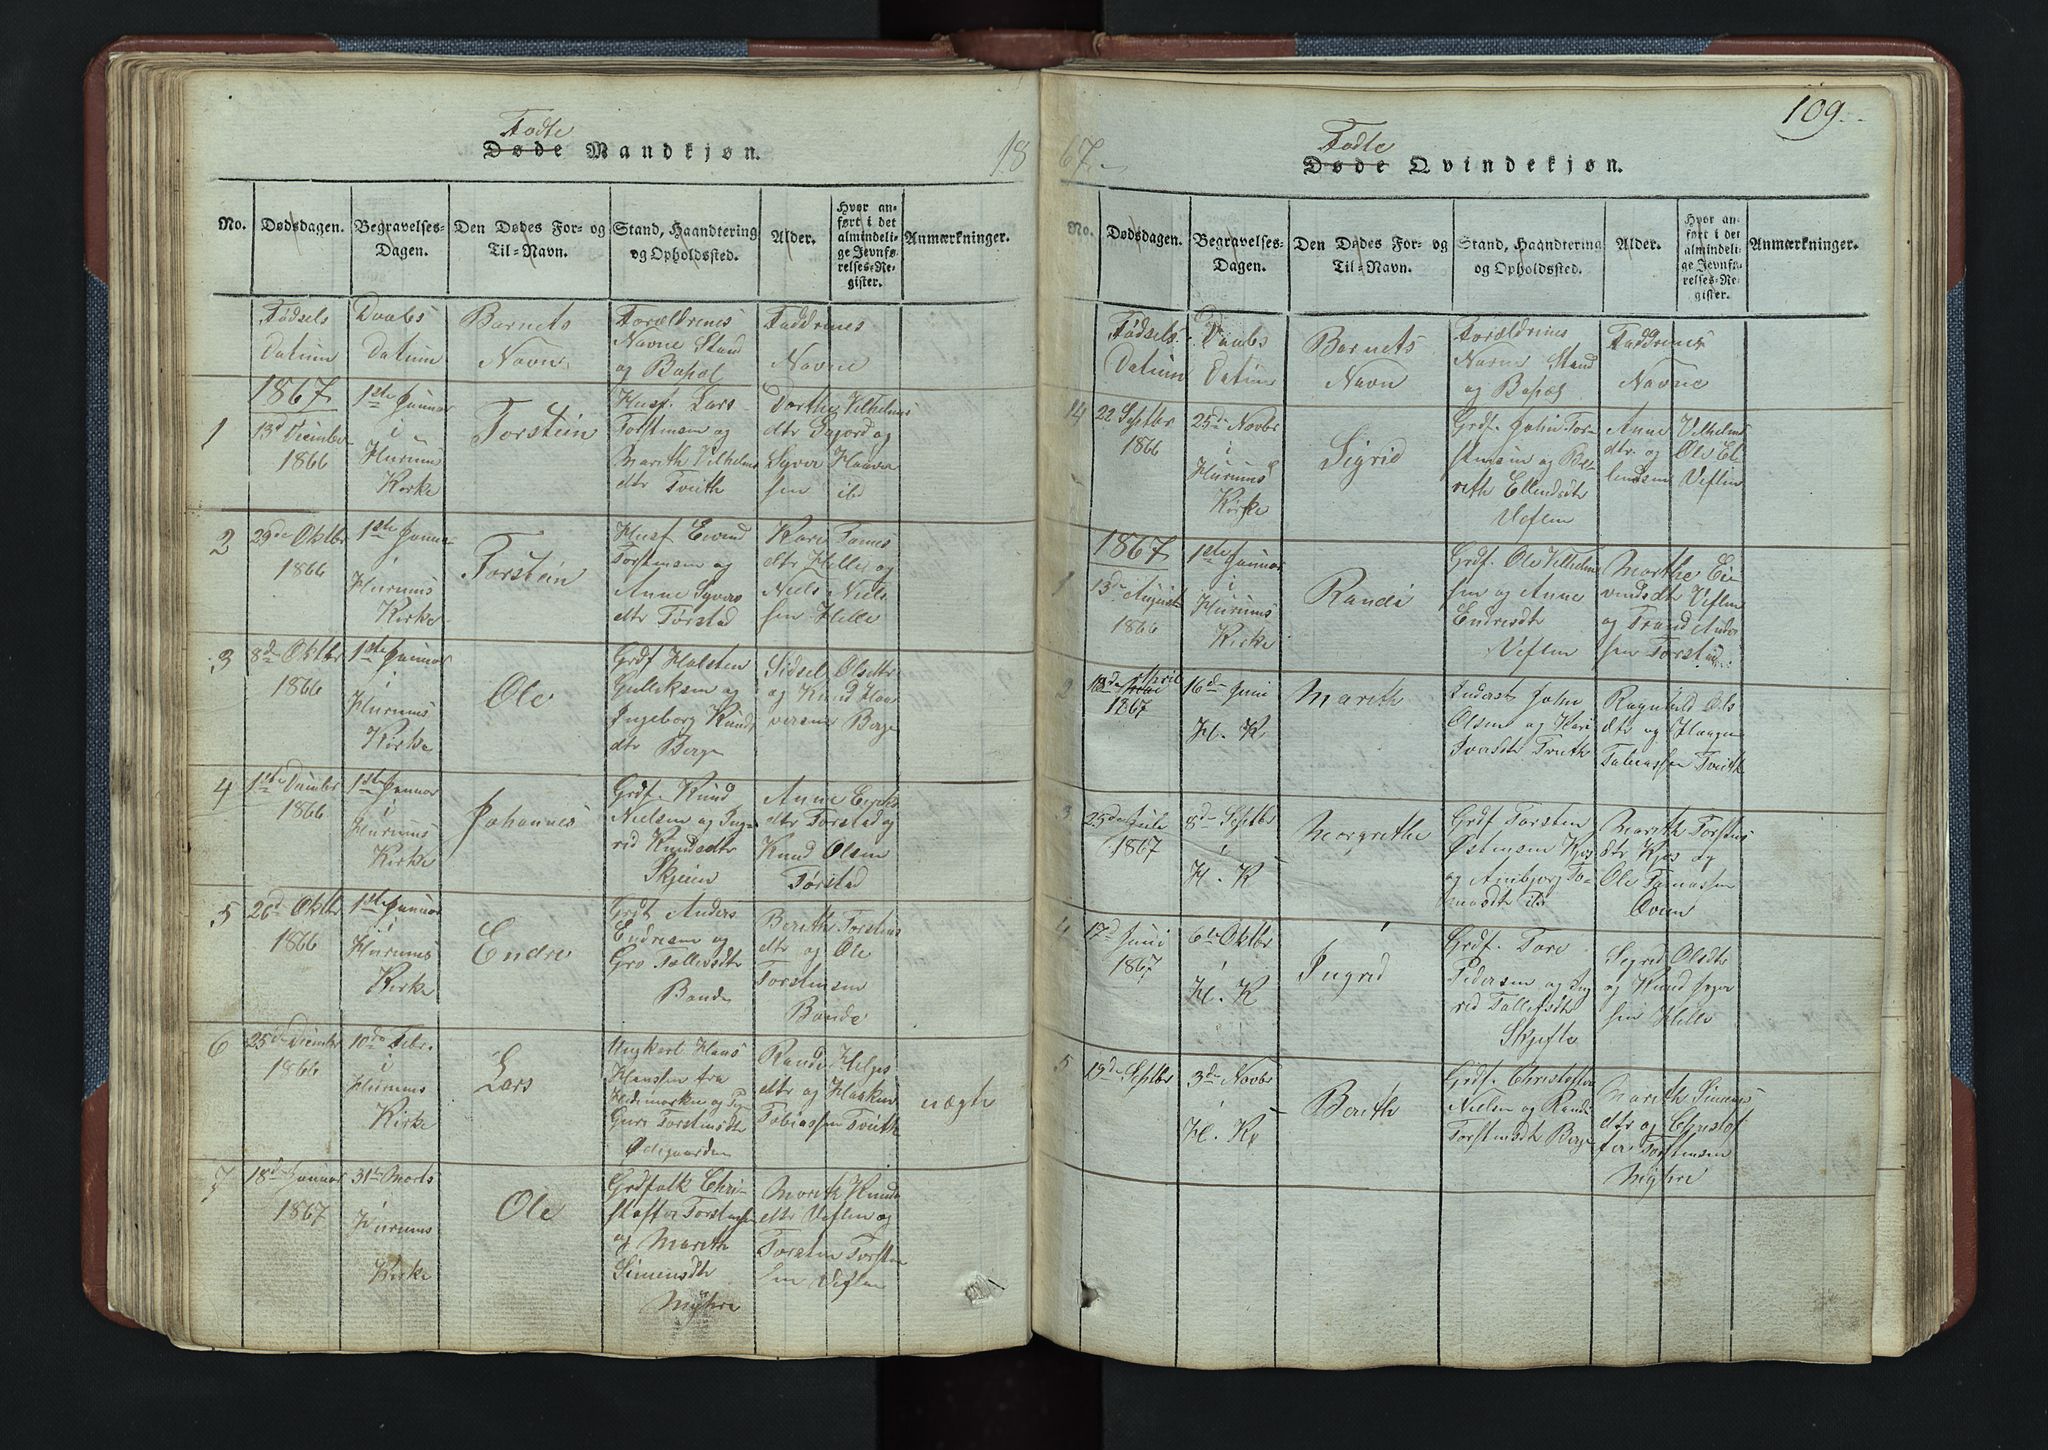 Fødte
Døde Mandkjøn.
18
No.
Dødsdagen.
Begravelses-
Dagen.
Den Dødes For- og
Til-Navn.
Stand, Haandtering
og Opholdssted.
Alder.
Hvor an-
ført i det
almindeli-
ge Jevnfø-
relses-Re-
gister.
Anmærkninger.
Fødsels
Datum
Daabs
Datum
Barnets
Navn
Forældrenes
Navne Stand
og Bopæl
Faddrenes
Navne
1867
1
13de Decmbr
1866
1ste Januar
i
Hurums
Kirke
Torstein
Husf. Lars
Torstensen og
Marith Vilhelms
dtr Tveith
Dorthe Vilhelms
dtr
Syver Haavar
sen ibd
2
29de Oktbr
1866
1ste Januar
i
Hurums
Kirke
Torstein
Husf Eivind
Torstensen og
Anne Syvers
dtr Tørstad
Kari Tomes
dtr Helle og
Niels Niel
sen Helle
3
8de Oktbr
1866
1ste Januar
i
Hurums
Kirke
Ole
Grdf Halsten
Gulleksen og
Ingeborg Knuds
dtr Berge
Sidsel Olsdtr
og Knud Haa
versen Berge
4
1ste Decmbr
1866
1ste Januar
i
Hurums
Kirke
Johannes
Grdf. Knud
Nielsen og Ing-
rid Knudsdtr
Skjeim
Anne
dtr Tørstad og
Knud Olsen
Tørstad
5
26de Oktbr
1866
1ste Januar
i
Hurums
Kirke
Endre
Grdf Anders
Endresen og
Gro Tollefsdtr
Bønde
Berith Torstens
dtr og Ole
Torstensen
Bønde
6
25de Decmbr
1866
10de Febr.
i
Hurums
Kirke
Lars
Ungkarl Hans
Hanssen fra
Hedemarken og Pg
Guri Torstensdtr
Ødegaarden
Randi Helges
dtr og Haaken
Tobiassen Tveith
uægte
7
18de Januar
1867
31te Marts
i
Hurums
Kirke
Ole
Grdfolk Chri-
stoffer Torstensen
og Marith
Simensdtr
Myhre
Marith Knuds
dtr Veflen og
Torsten Torsten
sen Veflen
109.
Fødte
67.
Døde Qvindekjøn.
No.
Dødsdagen.
Begravelses-
Dagen.
Den Dødes For- og
Til-Navn.
Stand, Haandtering
og Opholdssted.
Alder.
Hvor an-
ført i det
almindeli-
ge Jevnfø-
relses-Re-
gister.
Anmærkninger.
Fødsels
Datum
Daabs
Datum
Barnets
Navn
Forældrenes
Navne Stand
og Bopæl
Faddrenes
Navne
14
22 Septbr
1866
25de Novbr
i
Hurums
Kirke
Sigrid
Grdf. John Tor-
stensen og Be-
rith Ellendsdtr
Veflen
Anne Vilhelms
dtr og Ole El-
lendsen Veflen
1867
1
13de August
1866
1ste Januar
i
Hurums
Kirke
Randi
Grdf. Ole Vilhelm
sen og Anne
Endresdtr
Veflen
Marthe Ei-
vindsdtr Veflen
og Trond Anders
sen Tørstad
2
18de April
1867
16de Juni
H. K
Marith
Inderst John
Olsen og Kari
Iversdtr Tveith
Ragnhild Ols
dtr og Haagen
Tobiassen Tveith
3
25de Juli
1867
8de Septbr
H. K
Margrethe
Grdf Torsten
Østensen Kjøs
og Ambjørg To-
masdtr ibd
Marith Torstens
dtr Kjøs og
Ole Tomassen
Qvien
4
17de Juni
1867
6te Oktbr
H. K
Ingrid
Grdf. Tore
Pedersen og Ing
rid Tollefsdtr
Skjefte
Sigrid Olsdtr
og Knud Iver
sen Helle
5
19de Septbr
3de Novbr
H. K
Berith
Grdf. Christoffer
Nielsen og Randi
Torstensdtr Berge
Marith Simens
dtr og Christof
fer Torstensen
Myhre